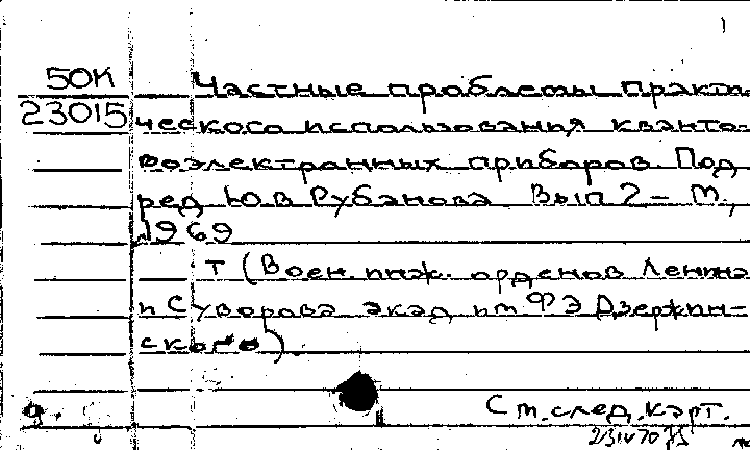 50К Частные проблемы практи-
23015 ческого использования кванто-
воэлектронных приборов Под
ред Ю.В Рубанова Вып 2 – М.,
1969
т (Воен. инж. орденов Ленина
и Суворова акад им. ФЭ Дзержин-
ского).
См. след. карт.